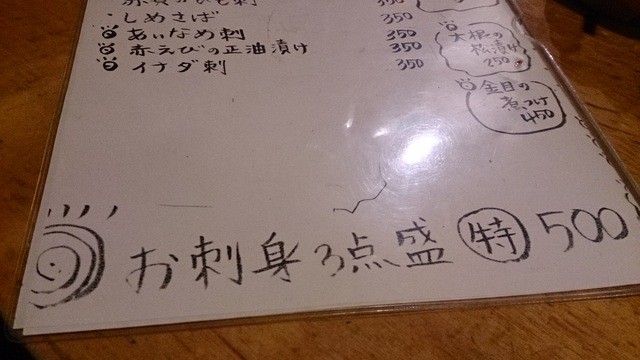 しめさば 350
あいなめ刺 350
赤えびの正油漬け 350
イナダ刺 350
大根の
松漬け
250
金目の
煮つけ
450
お刺身3点盛 特 500